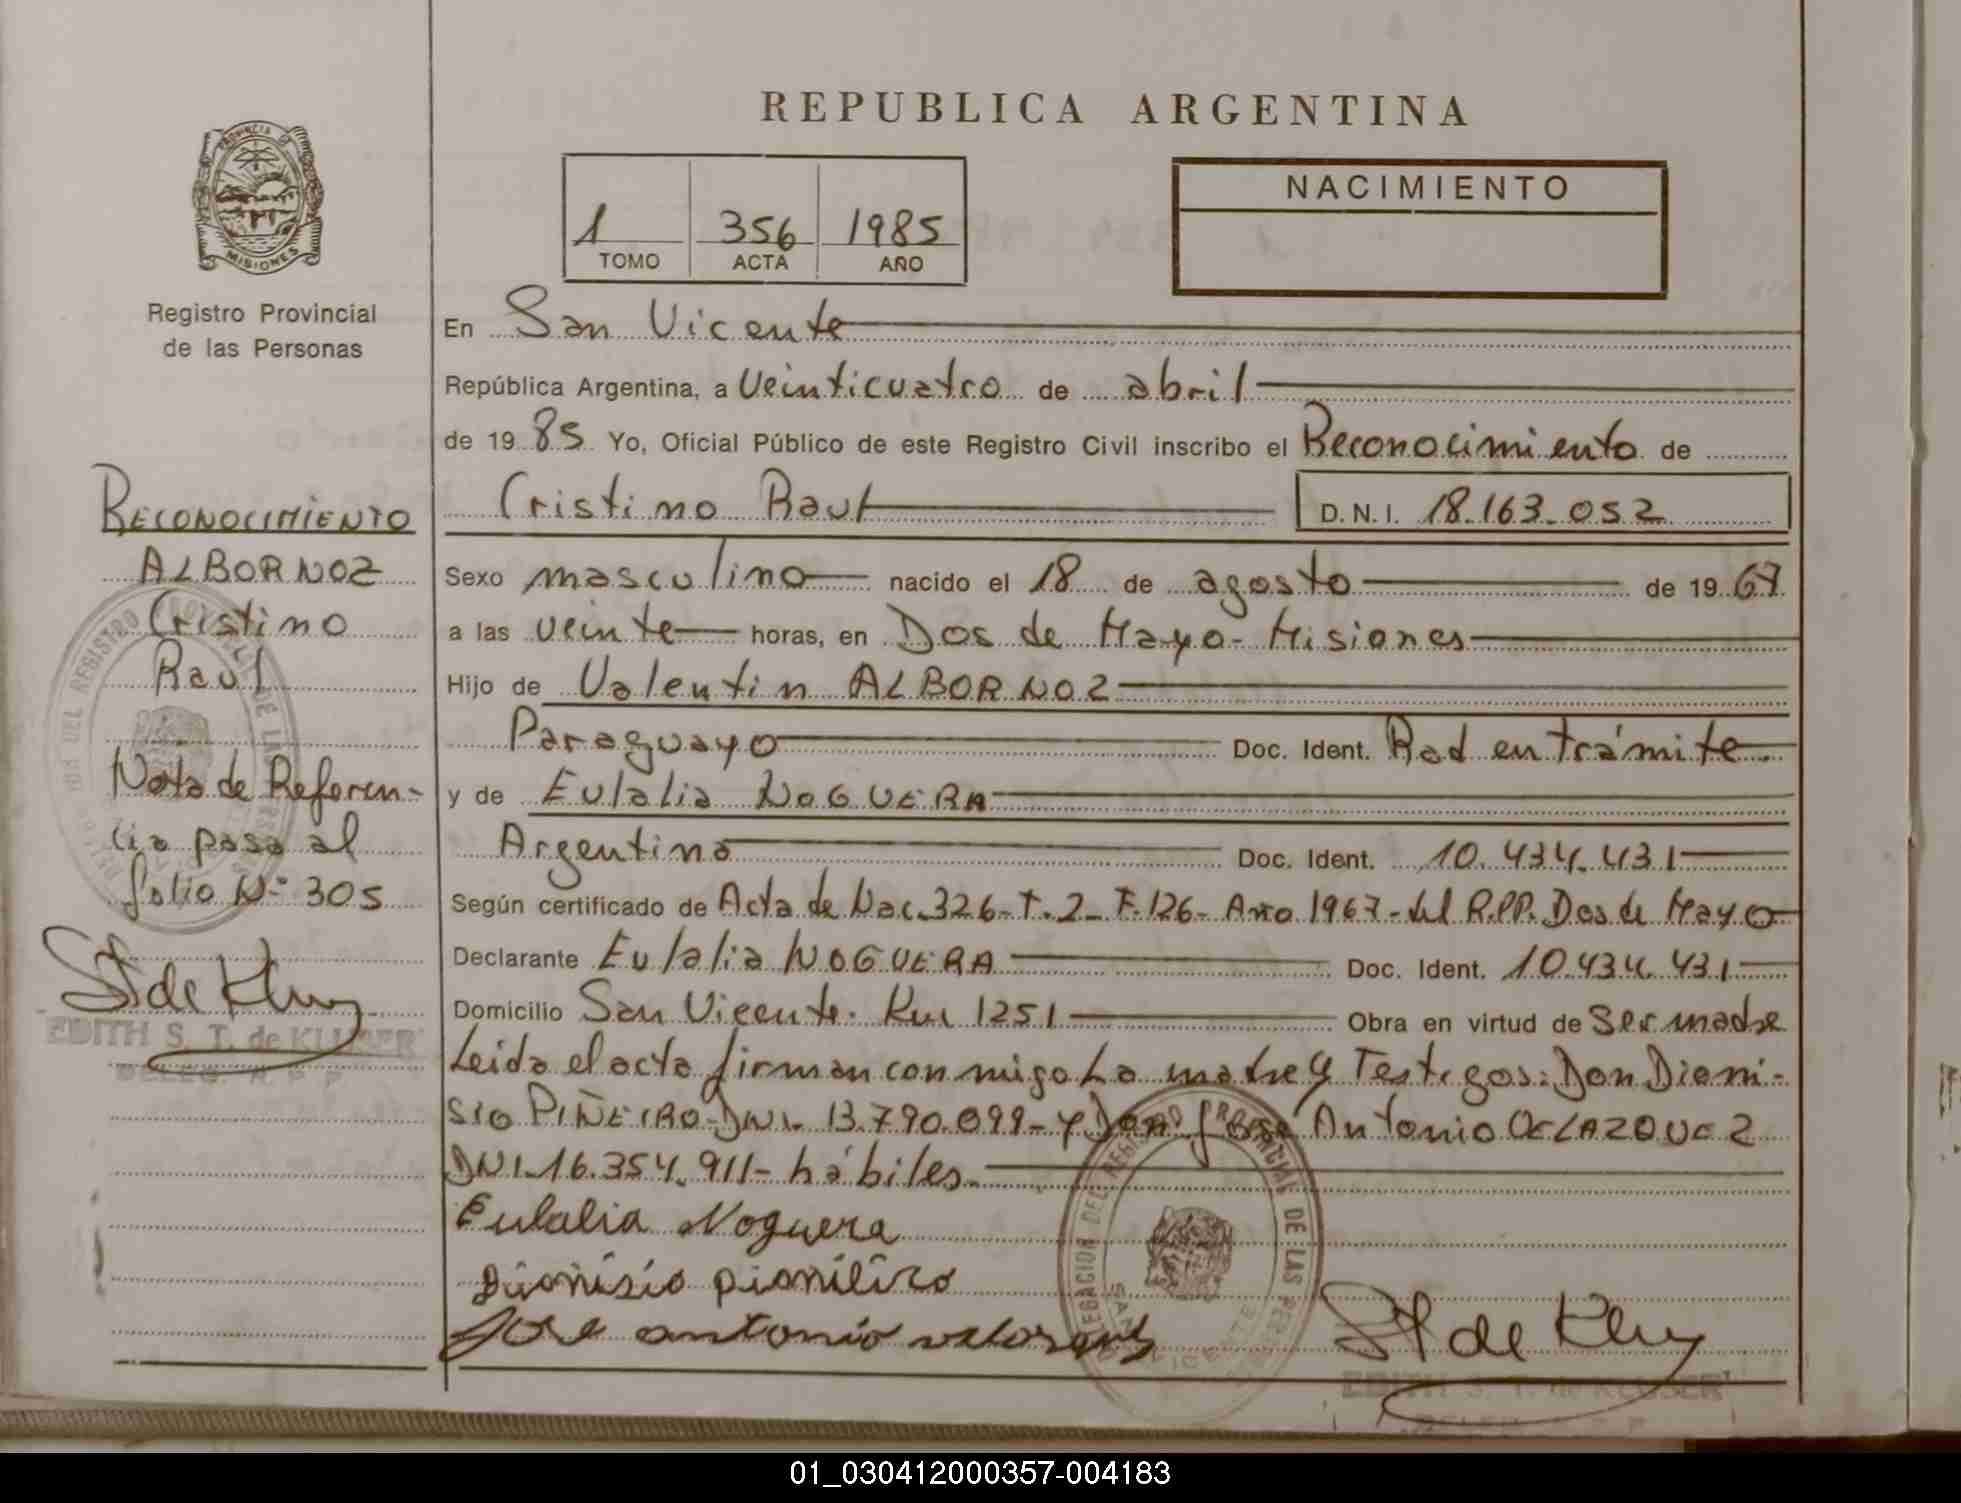 REPUBLICA ARGENTINA
PROVINCIA DE
MISIONES
Registro Provincial
de las Personas
NACIMIENTO
1 356 1985
TOMO ACTA AÑO
En San Vicente
República Argentina, a Veinticuatro de abril
de 1985 Yo, Oficial Público de este Registro Civil inscribo el Reconocimiento de
Cristino Raul D.N.I. 18.163.052
Sexo masculino nacido el 18 de agosto de 1967
a las veinte horas, en Dos de Mayo - Misiones
Hijo de Valentin ALBORNOZ
Paraguayo Doc. Ident. Rad en trámite
y de Eulalia NOGUERA
Argentina Doc. Ident. 10.434.431
Según certificado de Acta de Nac. 326-T. 2- F. 126- Año 1967- del R.PP. Dos de Mayo
Declarante Eulalia NOGUERA Doc. Ident. 10.434.431
Domicilio San Vicente. Km 1251 Obra en virtud de Ser madre
Leida el acta firman conmigo La madre y Testigos: Don Dioni-
sio PIÑEIRO- DNI- 13.790.099- y Don José Antonio
DNI-16.354.911- hábiles.
Eulalia Noguera
Dionisio
Jose antonio
St de
EDITH S. T. de KEUSER
RECONOCIMIENTO
ALBORNOZ
Cristino
Raul
Nota de Referen-
cia pasa al
folio Nº 305
St de
EDITH S. T. de
DELEG. R. P. P.
DELEGACION DEL REGISTRO PROVINCIAL DE LAS
SAN VICENTE
01_030412000357-004183